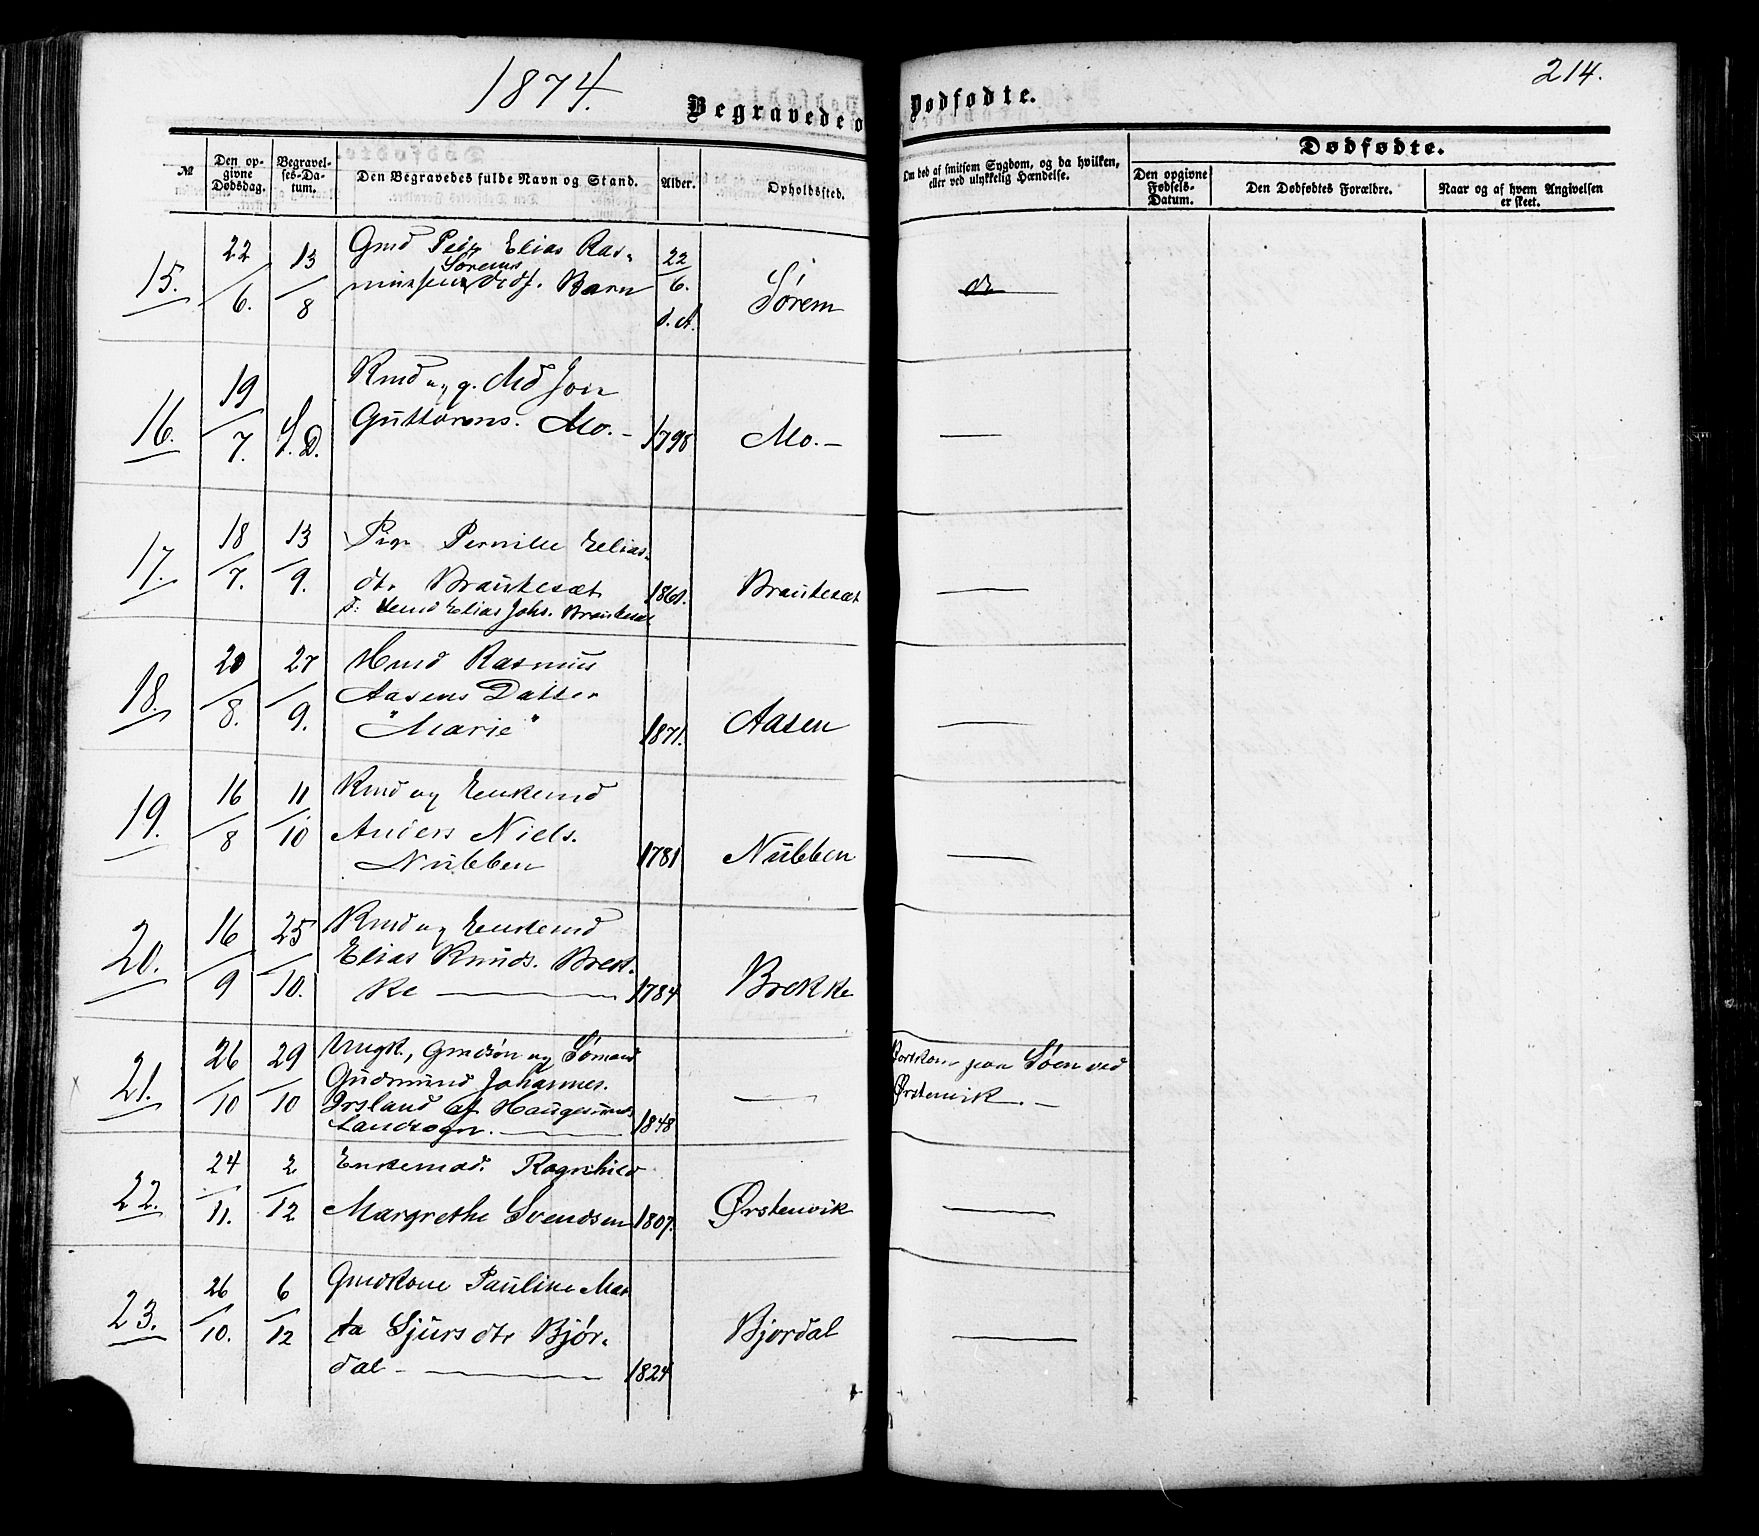 1874.
214.
Begravede o
Dødfødte.
№
Den opgivne Dødsdag.
Begravelses-Datum.
Den Begravedes fulde Navn og Stand.
Alder.
Opholdssted.
Om død af smitsom Sygdom, og da hvilken, eller ved ulykkelig Hændelse.
Dødfødte.
Den opgivne Fødsels-Datum.
Den Dødfødtes Forældre.
Naar og af hvem Angivelsen er skeet.
15. 22/6. 13/8 Gmd Elias Ras-
Sørems
Barn 22/6. d. A. Sørem
16. 19/7. S.D. Kmd og g. Md Jon
Guttorms. Mo. – 1798 Mo. –
17. 18/7. 13/9. Pige Pernille Elias-
dtr Brautesæt 1861. Brautesæt
Elias Johs. Brautesæt
18. 20/8. 27/9. Hmd Rasmus
Aasens Datter
"Marie" 1871. Aasen
19. 16/8 11/10 Kmd og Enkemd
Anders Niels.
Nübben 1781 Nübben
20. 16/9 25/10. Kmd og Enkemd
Elias Knuds. Brek-
ke — 1784 Brekke
21. 26/10 29/10 Ungk., Gmdsøn og Sømand
Gudmund Johannes.
Irsland af Haugesunds
Landsogn. — 1848 —
Bortkom paa Søen ved
Ørstenvik. –
22. 24/11. 2/12 Enkemad. Ragnhild
Margrethe Svendsen 1807. Ørstenvik
23. 26/10. 6/12 Gmdkone Pauline Mar
ta Sjursdtr Bjør-
dal – 1824 Bjordal